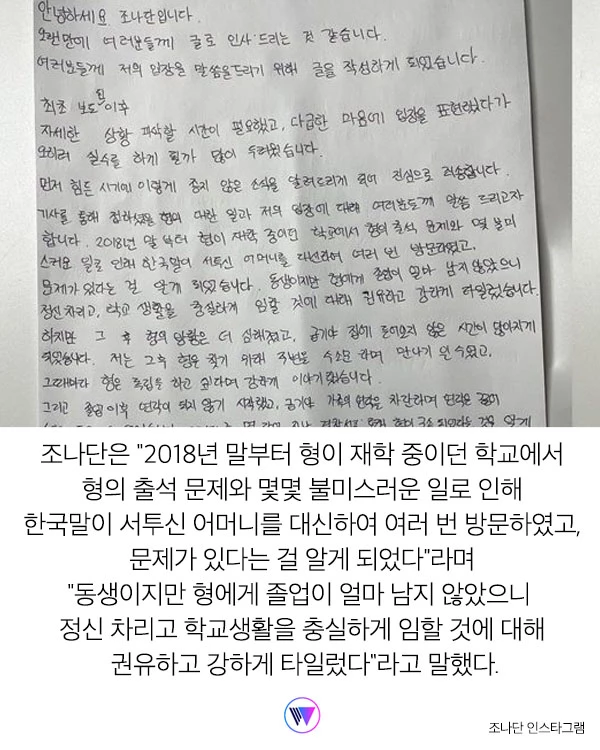 안녕하세요 조나단입니다.
오랜만에 여러분들께 글로 인사드리는 것 같습니다.
여러분들께 저의 입장을 말씀을드리기 위해 글을 작성하게 되었습니다.
최초 보도된 이후
자세한 상황 파악할 시간이 필요했고, 다급한 마음에 입장을 표현했다가
오히려 실수를 하게 될까 많이 두려웠습니다.
먼저 힘든 시기에 이렇게 좋지 않은 소식을 알려드리게 되어 진심으로 죄송합니다.
기사를 통해 접하셨을 형에 대한 일과 저의 입장에 대해 여러분들께 말씀 드리고자
합니다. 2018년 말부터 형이 재학 중이던 학교에서 형의 출석 문제와 몇 불미
스러운 일로 인해 한국말이 서투신 어머니를 대신하여 여러 번 방문하였고,
문제가 있다는 걸 알게 되었습니다. 동생이지만 형에게 졸업이 얼마 남지 않았으니
정신 차리고, 학교 생활을 충실하게 임할 것에 대해 권유하고 강하게 타일렀습니다.
하지만 그 후 형의 방황은 더 심해졌고, 급기야 집에 들어오지 않은 시간이 많아지게
되었습니다. 저는 그후 형을 찾기 위해 주변을 수소문 하며 만나기 일쑤였고,
그때마다 형은 독립을 하고 싶다며 강하게 이야기했습니다.
그리고 졸업 이후 연락이 되지 않기 시작했고, 급기야 가족의 연락을 차단하며 연락은 끊어
조나단은 "2018년 말부터 형이 재학 중이던 학교에서
형의 출석 문제와 몇몇 불미스러운 일로 인해
한국말이 서투신 어머니를 대신하여 여러 번 방문하였고,
문제가 있다는 걸 알게 되었다"라며
"동생이지만 형에게 졸업이 얼마 남지 않았으니
정신 차리고 학교생활을 충실하게 임할 것에 대해
권유하고 강하게 타일렀다"라고 말했다.
조나단 인스타그램